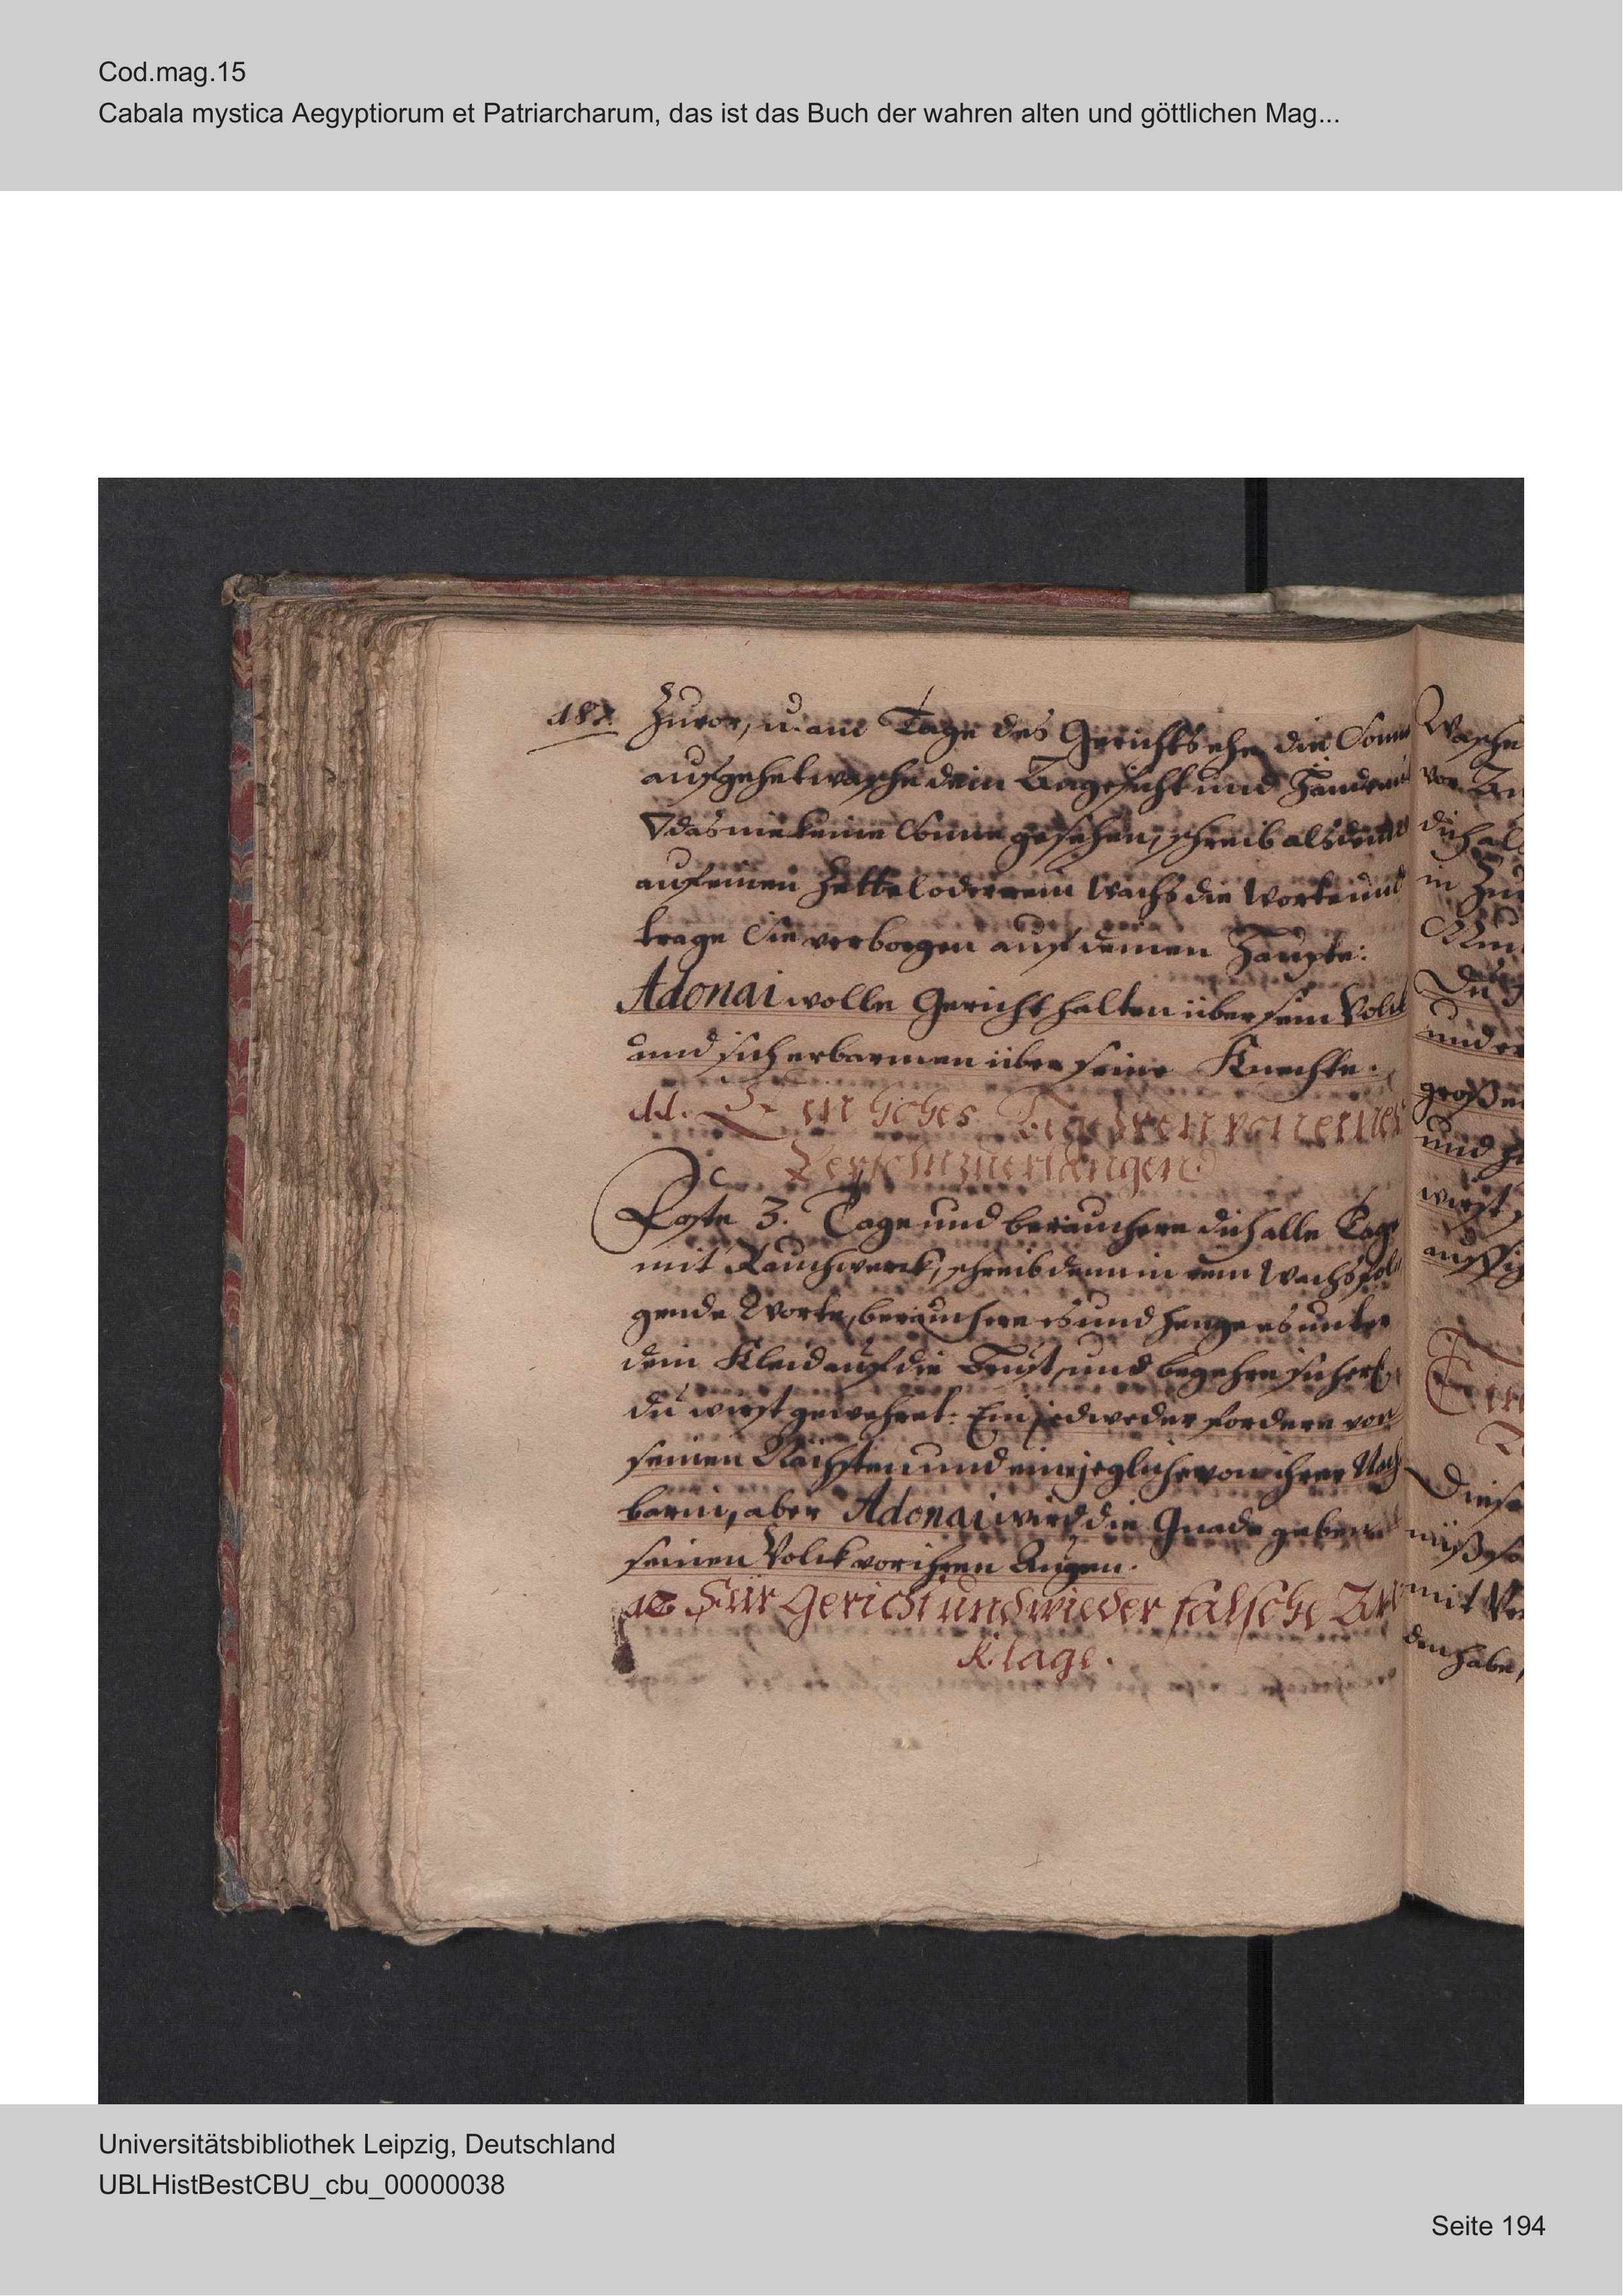 Cod.mag.15
Cabala mystica Aegyptiorum et Patriarcharum, das ist das Buch der wahren alten und göttlichen Mag...
Zuvor, u. am Tage des Gerichts ehe die Sonn
aufgehet wasche dein Angesicht und Hände mit
▽ das nie keine Sonne gesehen, schreib alsdenn
auf einen Zettel oder rein Wachs die Worte und
trage Sie verborgen auf deinen Haupte:
Adonai wolle Gericht halten über sein Volck
und sich erbarmen über seine Knechte.
11. Ein hohes Begehren von einer
Persohn zu erlangen
Faste 3. Tage und beräuchere dich alle Tage
mit Rauchwerck, schreib denn in rein Wachs fol
gende Worte, beräuchere es und henge es unter
dein Kleid auf die Brust, und begehre sicherl.
du wirst gewehret: Ein jedweder fordere von
seinen Nächsten und eine jegliche von ihrer Nach
barin, aber Adonai wird die Gnade geben
seinen Volck vor ihren Augen.
12 Für Gericht und wieder falsche An
klage.
Wasche
vor
dich als
in
und
großen
und
wirst
Diese
mit
den habe,
Universitätsbibliothek Leipzig, Deutschland
UBLHistBestCBU_cbu_00000038
Seite 194